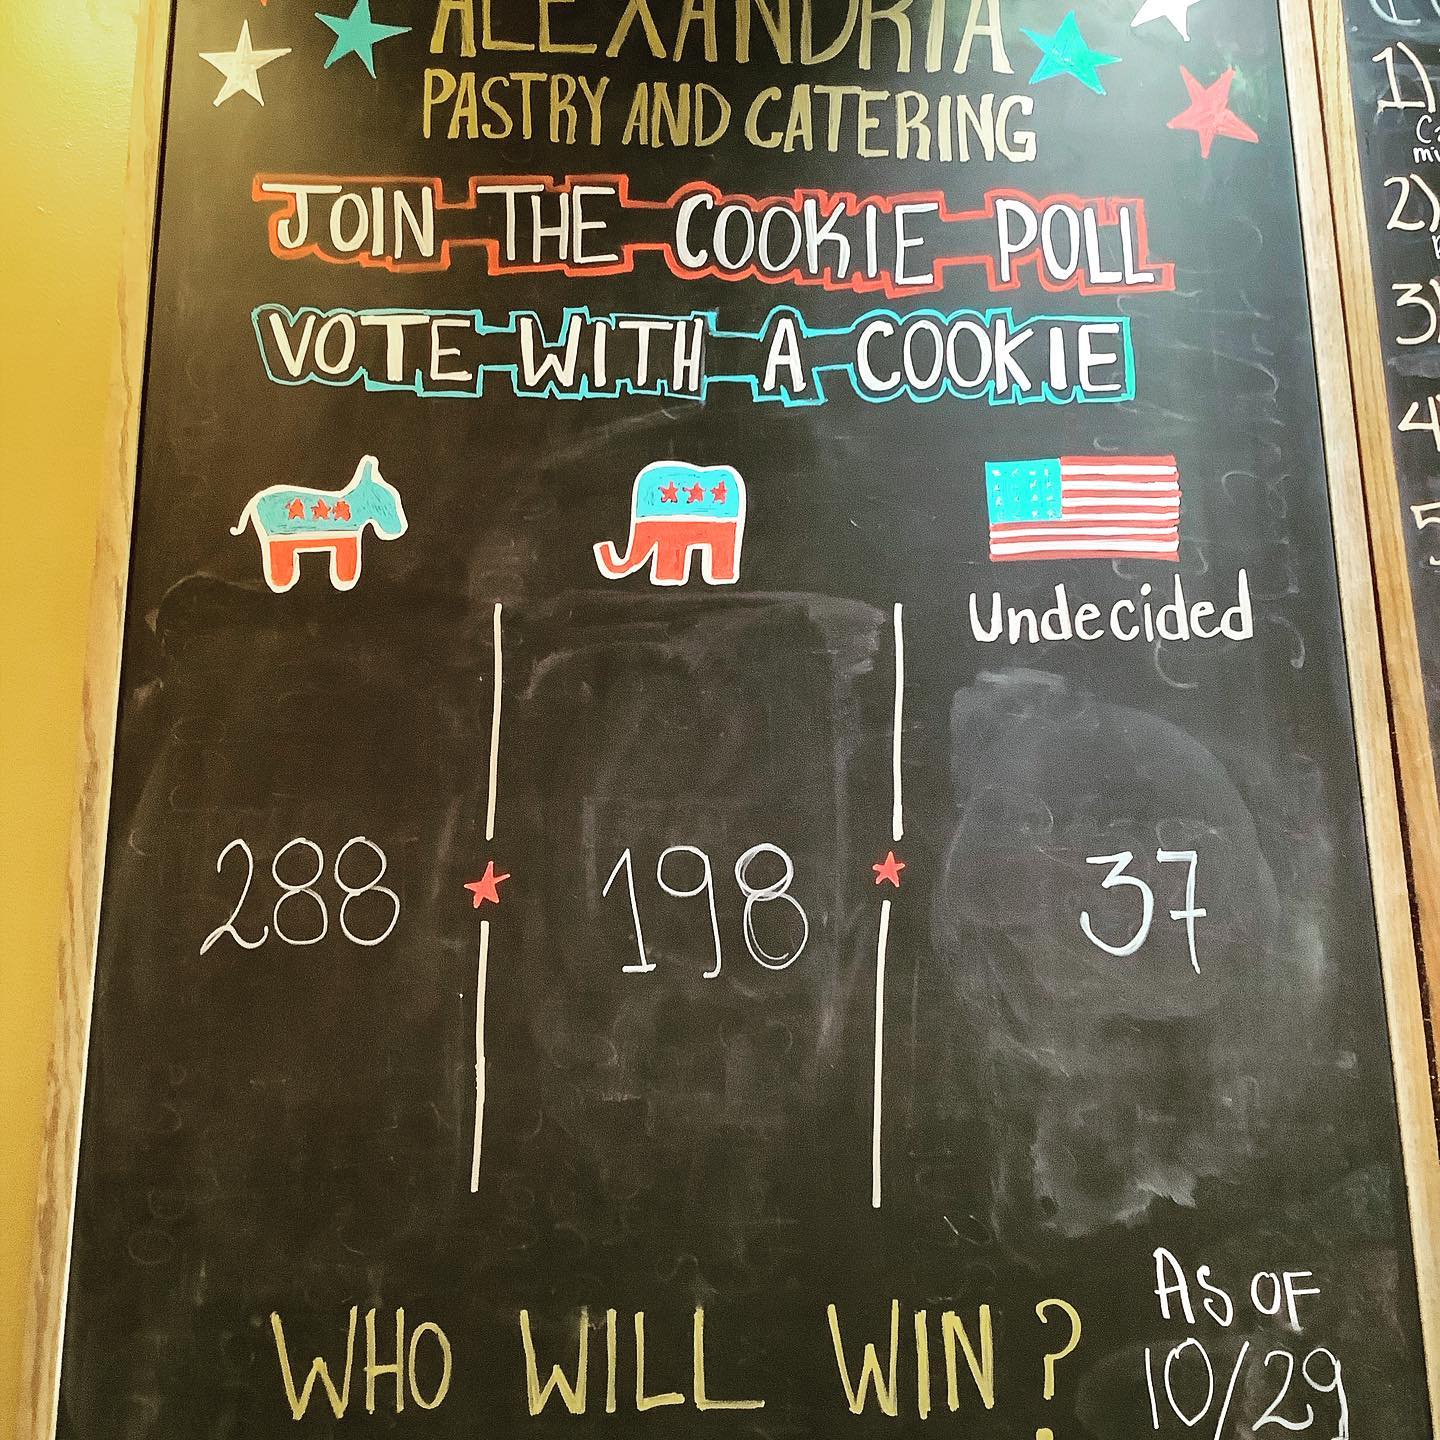 ALEXANDRIA
PASTRY AND CATERING
JOIN THE COOKIE POLL
VOTE WITH A COOKIE
Undecided
288
198
37
WHO WILL WIN?
AS OF
10/29
1)
2)
3)